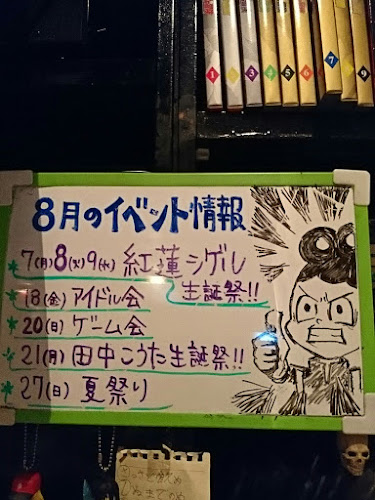 1 3 4 5 6 7 9
8月のイベント情報
7(月)8(火)9(水) 紅蓮シゲル
生誕祭!!
18(金) アイドル会
20(日) ゲーム会
21(月) 田中こうた生誕祭!!
27(日) 夏祭り